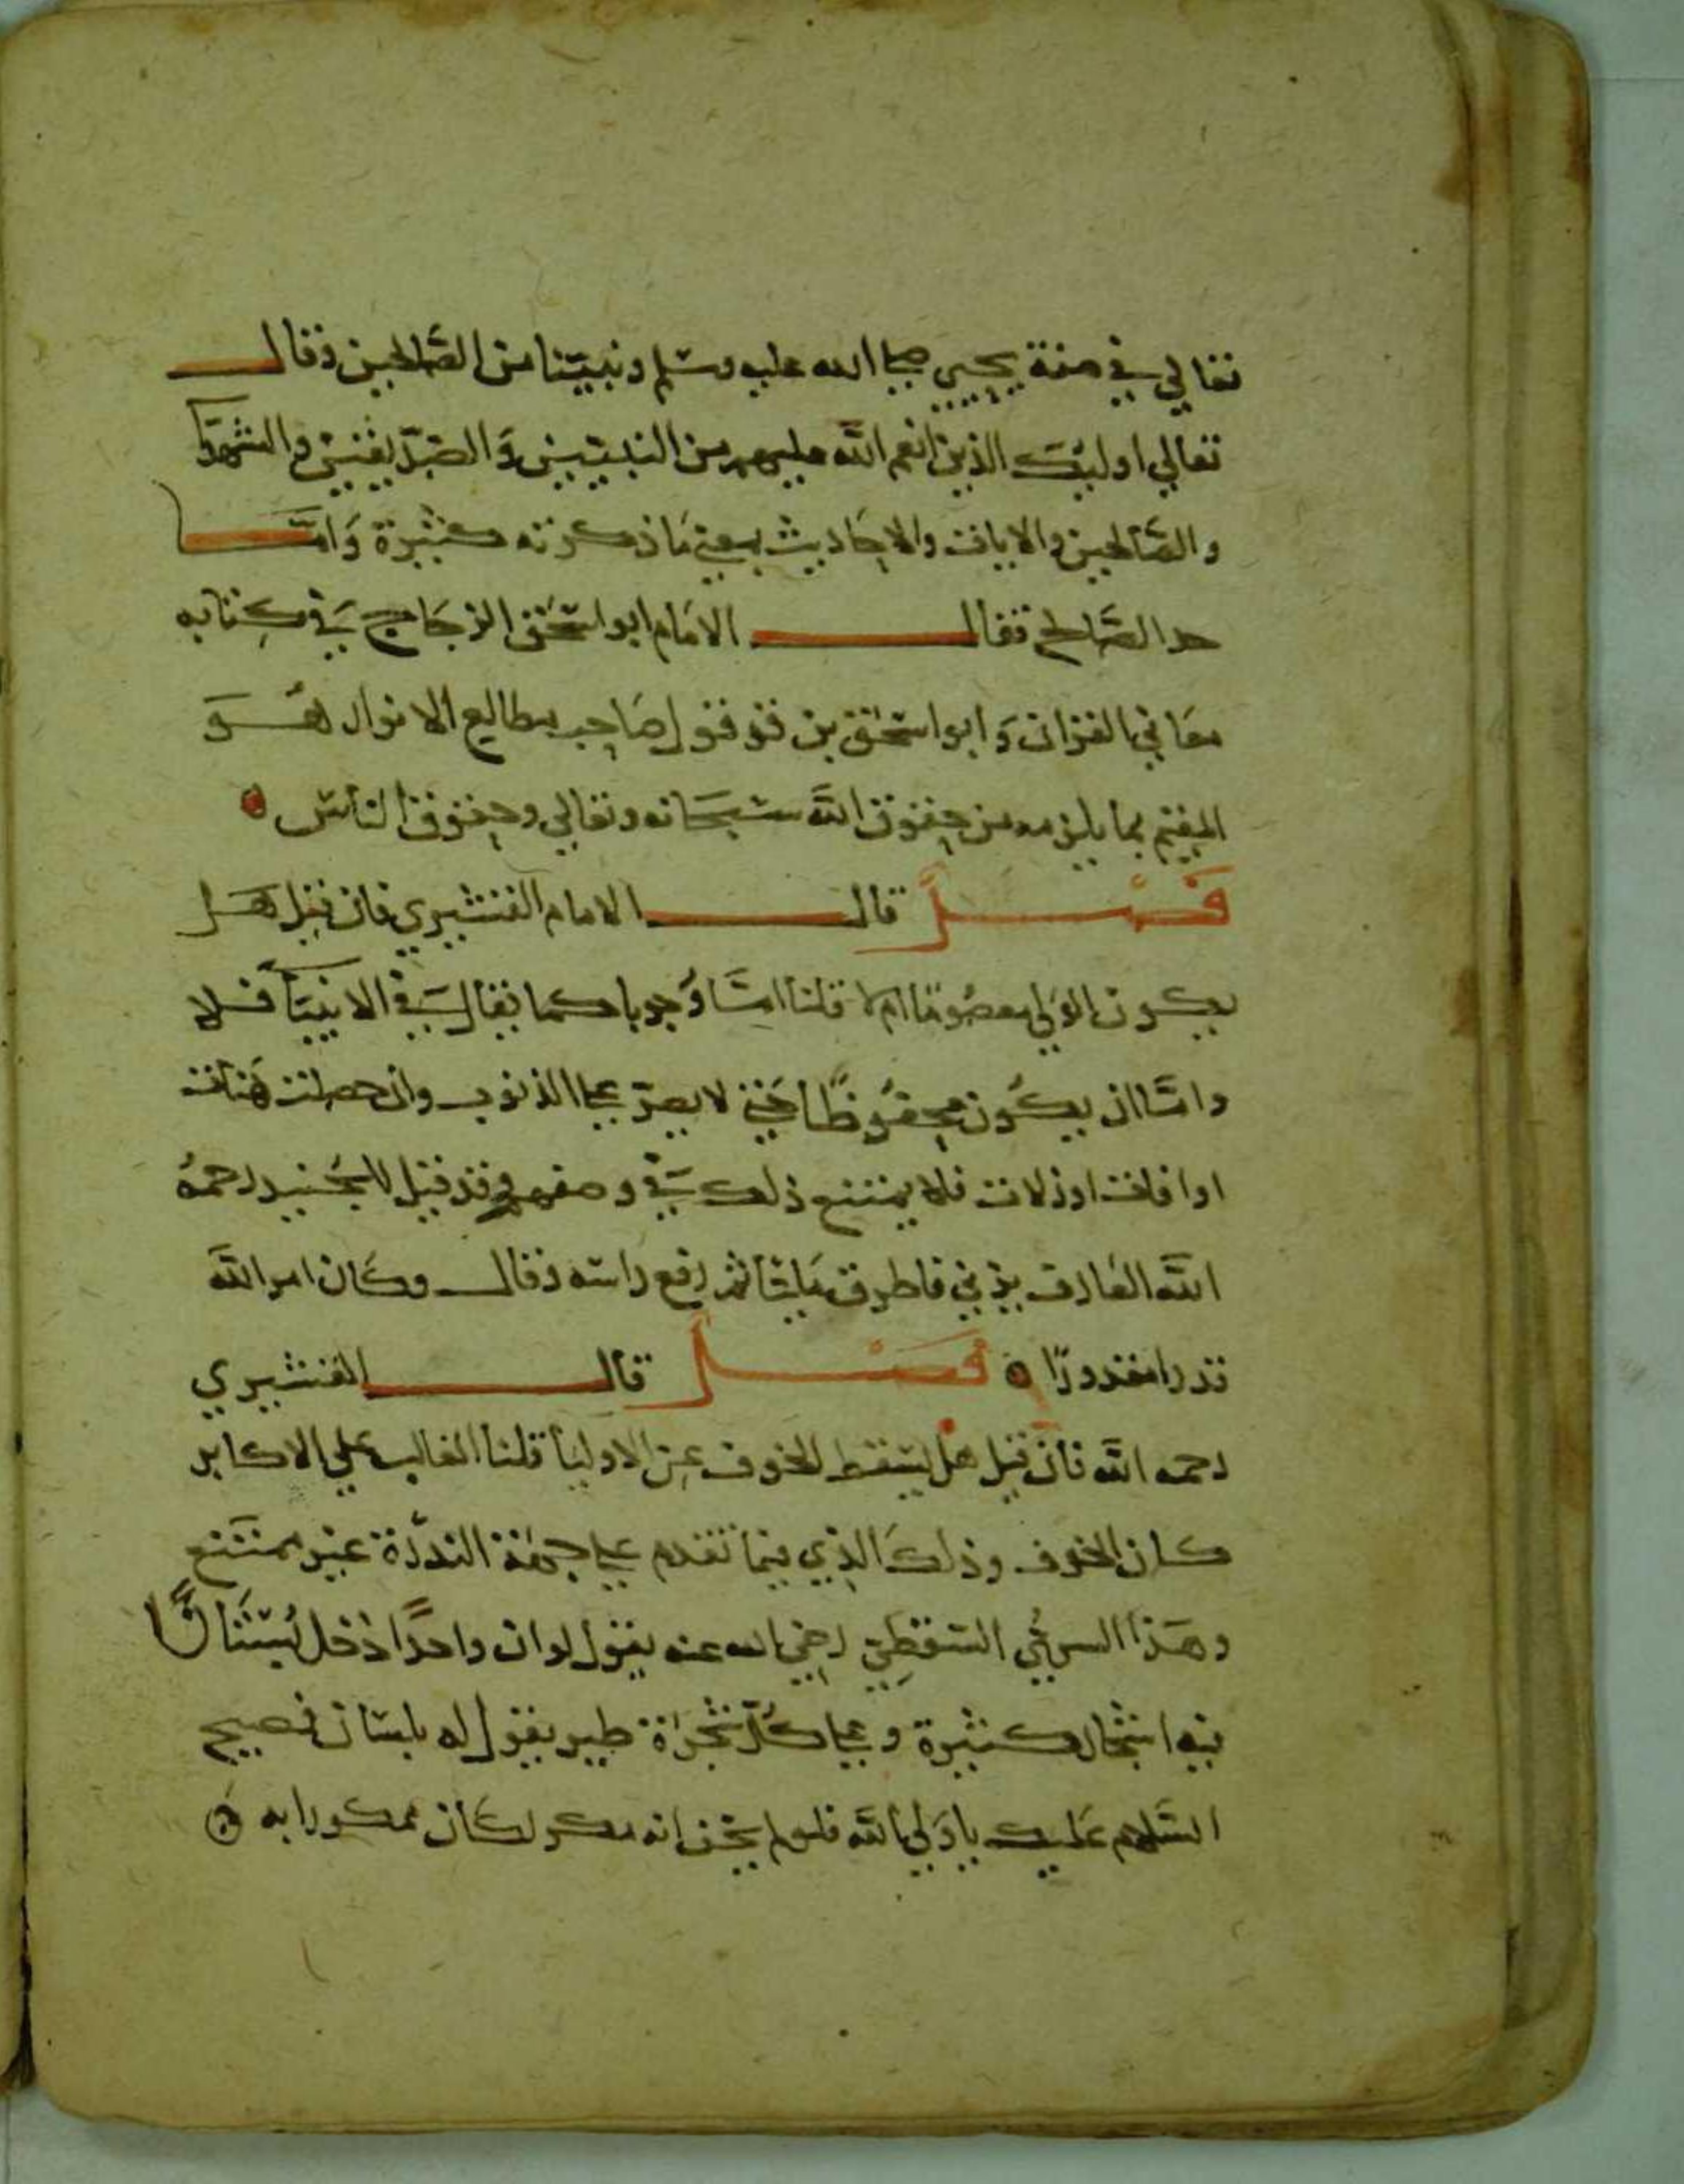 تعالي في صفة يحيي صلي الله عليه وسلم ونبيّنا من الصَّالحين وقال
تعالي اوليك الذين انعم الله عليهم من النبيّين وَالصّدّيقين والشهدا
والصَّالحين والايات والاحَاديث بمعني مَا ذكرته كثيرة وَامَّا
حد الصَّالح فقال الامَام ابو اسحٰق الزجَاج في كِتابه
معَاني القران وَابو اسحٰق بن قرقول صَاحب مطالع الانوار هُوَ
المقيم بما يلزمه من حقوق اللّه سُبحَانه وتعالي وحقوق النَّاس ه
فَصْلٌ قال الامام القشيري فان قيل هَل
يكون الوَلي معصُومًا ام لا قلنا امّا وُجوبا كما يقال في الانبيَآ فلا
وامَّا ان يكُون محفُوظًا حَتي لا يصرّ علي الذنوب وان حصلت هَنات
او افات او زلات فلا يمتنع ذلك في وصفهم وقد قيل للجُنيد رحمهُ
اللّه العَارف يزني فاطرق مَليّا ثم رفع راسه وقال وكَان امر اللّه
قدرا مقدورًا ه فُصَلٌ قال القشيري
رحمه اللّه فان قيل هل يسْقط الخوف عَن الاوليآ قلنا الغالب علي الاكابر
كان الخوف وذلكَ الذي فيمَا تقدم علي جهَة الندْرَة غير ممتَنع
وهَذا السريُّ السَّقطِي رضي الله عنه يقول لو ان واحدًا دَخل بُسْتَانًا
فيه اشجار كثيرة وعلي كُلّ شجَرَة طير يقول له بلسَان فصيح
السَّلام عَليك يا وَلي اللّه فلو لم يخف انه مكر لكَان ممكورا به ه